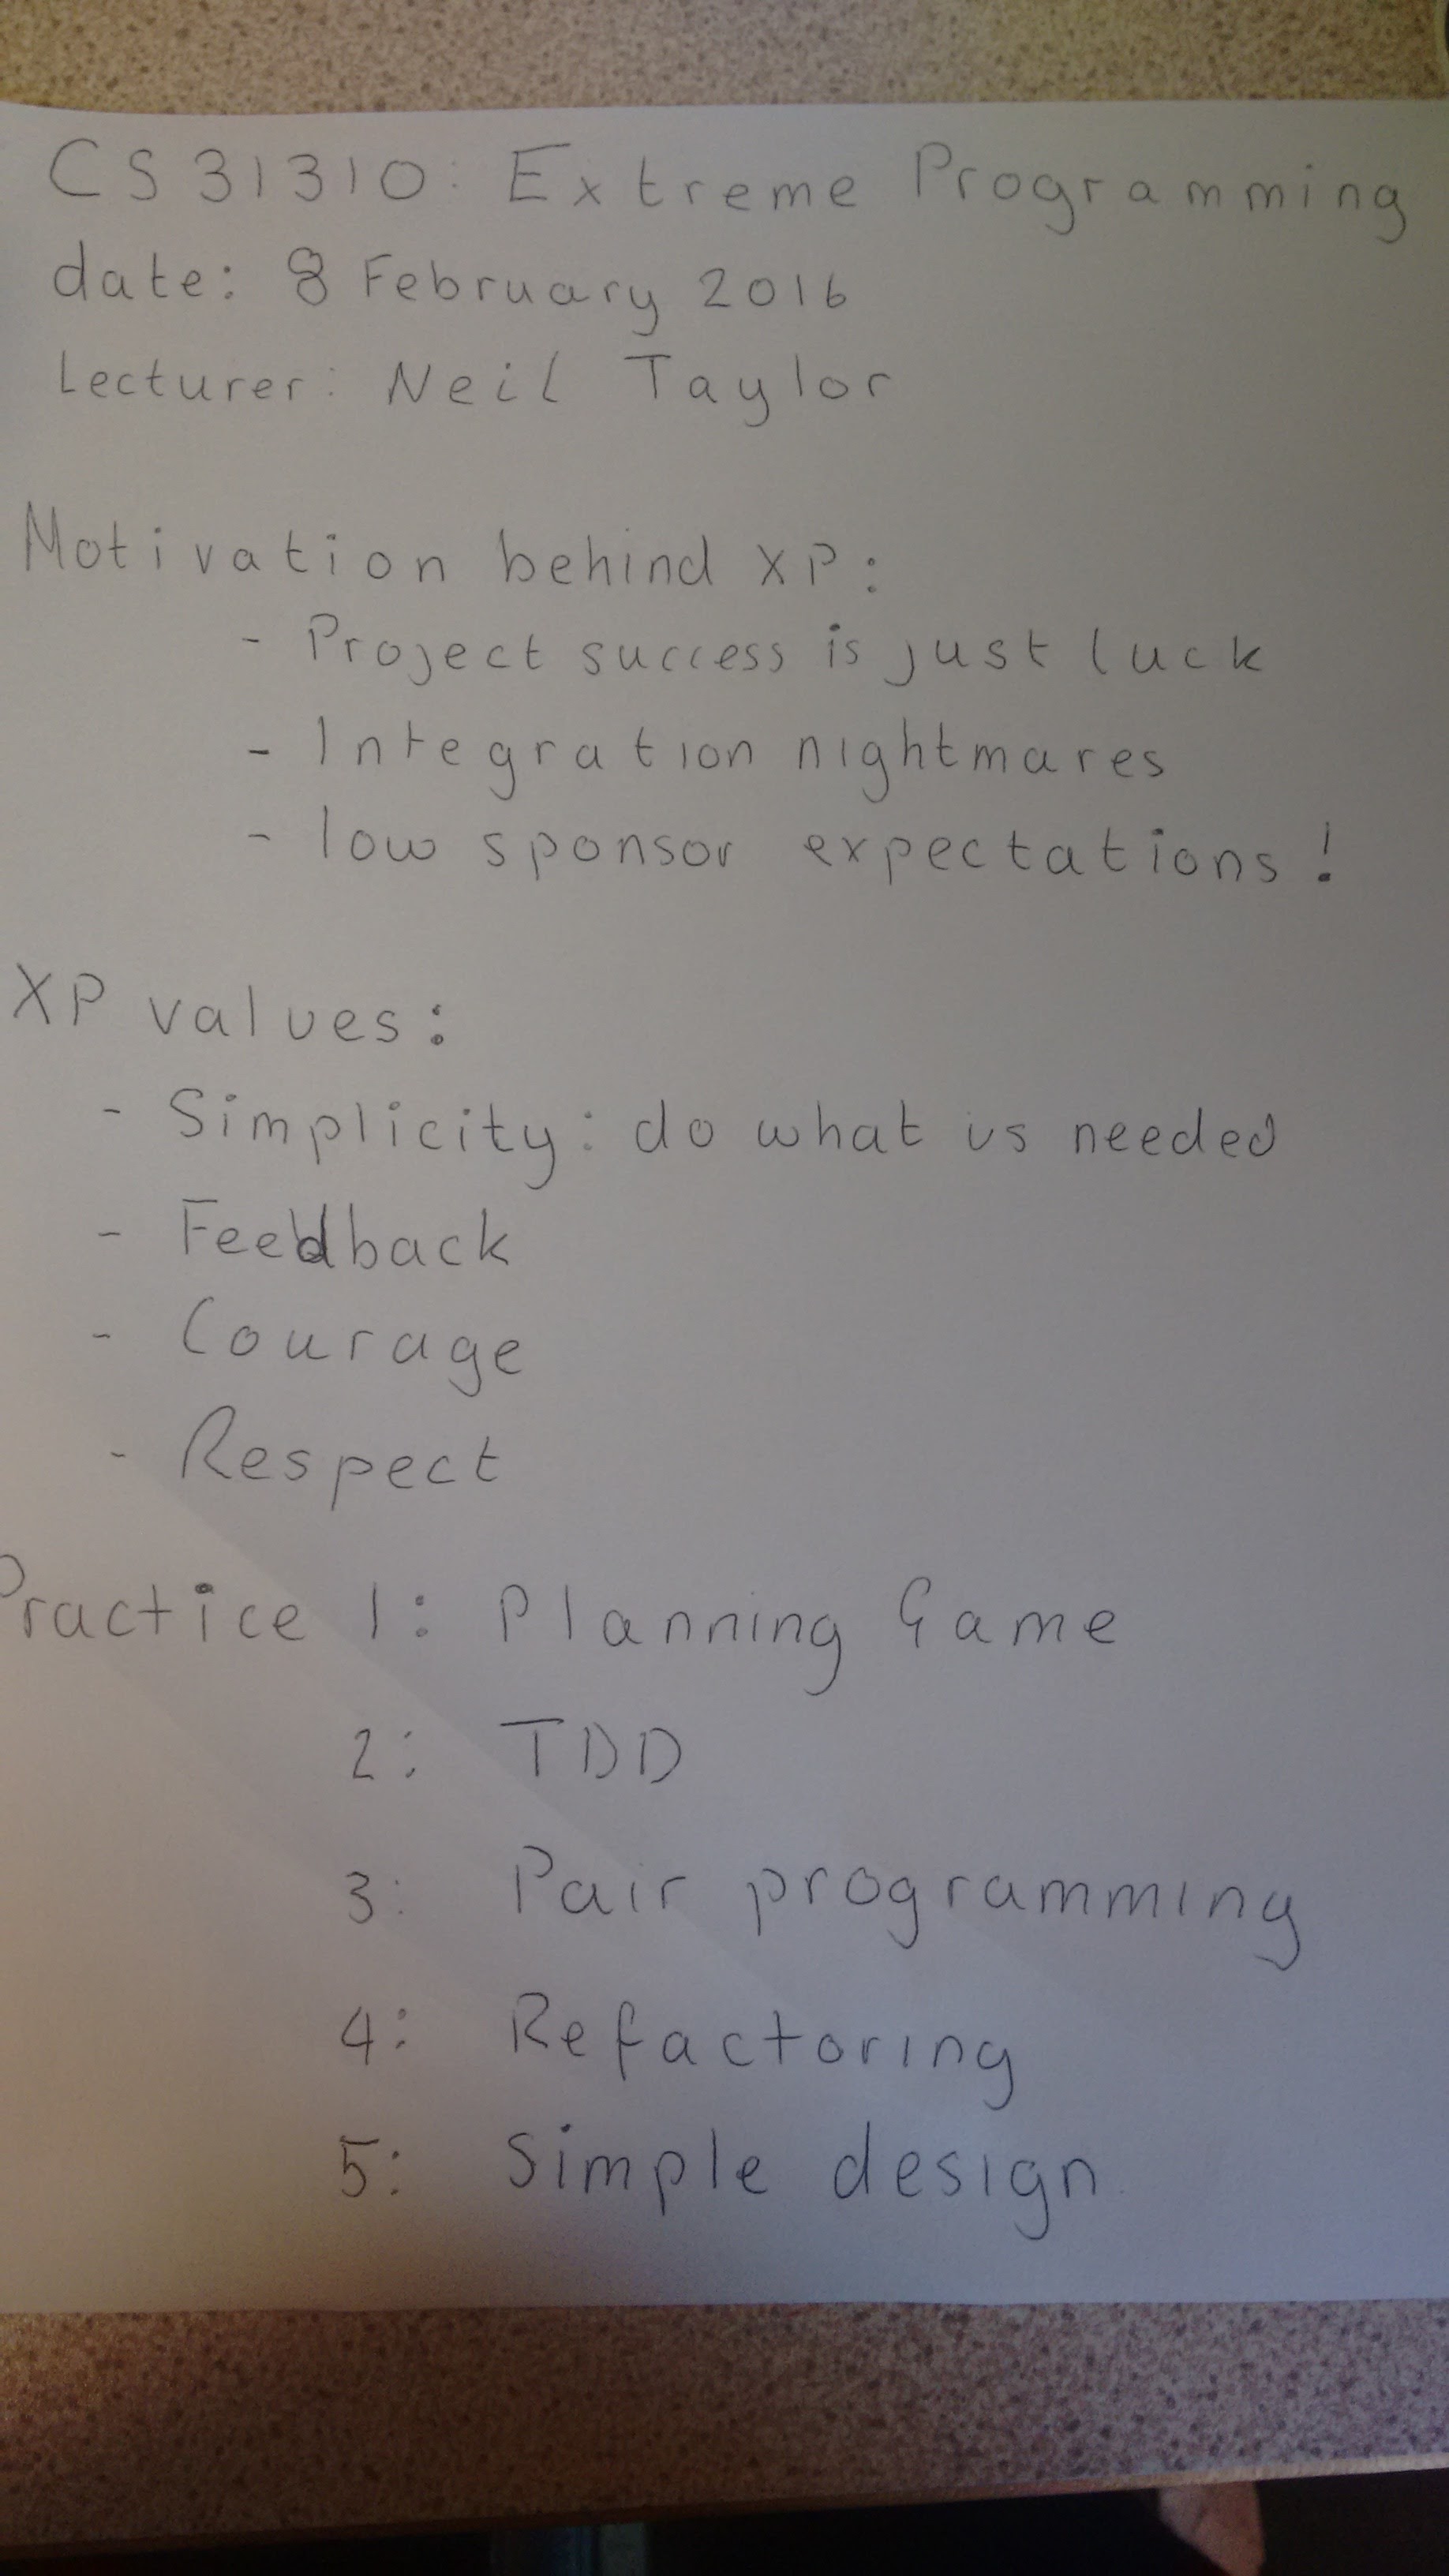 CS31310: Extreme Programming
date: 8 February 2016
Lecturer: Neil Taylor
Motivation behind XP:
- Project success is just luck
- Integration nightmares
- low sponsor expectations!
XP values:
- Simplicity: do what is needed
- Feedback
- Courage
- Respect
Practice 1: Planning Game
2: TDD
3: Pair programming
4: Refactoring
5: Simple design